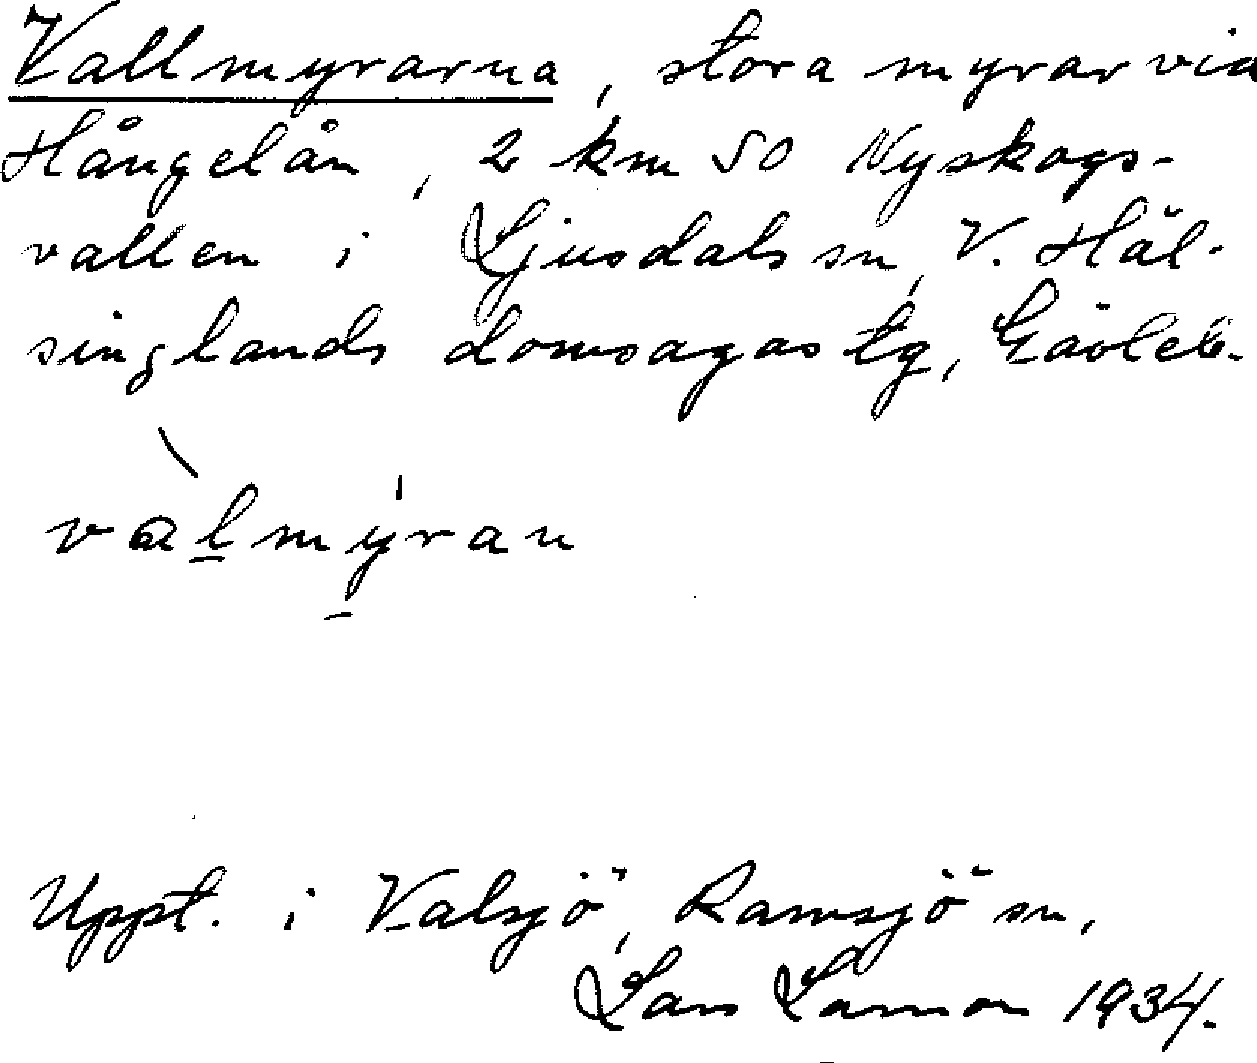 Vallmyrarna, stora myrar vid
Hångelån, 2 km SO Nyskogs-
vallen i Ljusdals sn, V. Häl-
singlands domsagas tg, Gävleb.
vàlmýran
Uppt. i Valsjö, Ramsjö sn,
Lars Larson 1934.